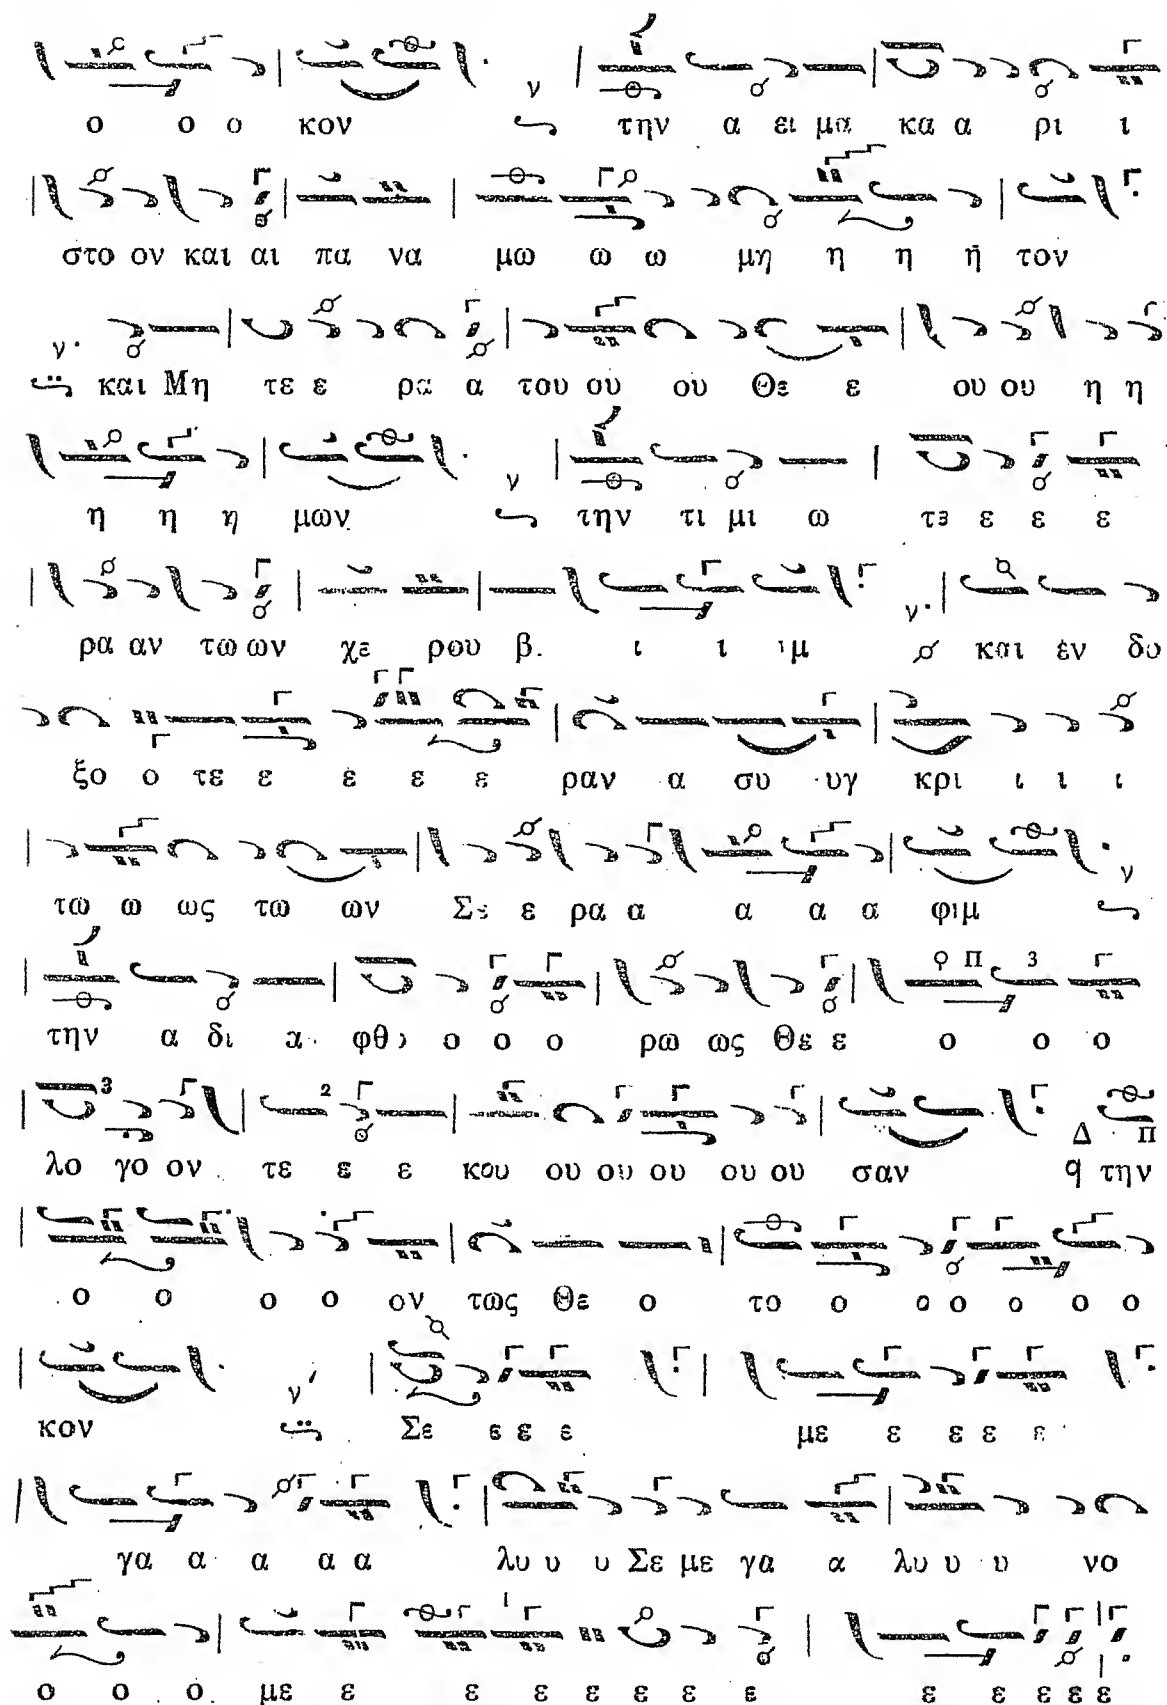 ο ο ο κον ν την α ει μα κα α ρι ι
στο ον και αι πα να μω ω ω μη η η η τον
ν και Μη τε ε ρα α του ου ου Θε ε ου ου η η
η η η μων ν την τι μι ω τε ε ε ε
ρα αν τω ων χε ρου β. ι ι ιμ ν και έν δο
ξο ο τε ε ε ε ε ραν α συ υγ κρι ι ι ι
τω ω ως τω ων Σε ε ρα α α α α φιμ ν
την α δι α φθο ο ο ο ρω ως Θε ε ο ο ο
λο γο ον τε ε ε κου ου ου ου ου ου σαν Δ Π την
ο ο ο ο ον τως Θε ο το ο ο ο ο ο ο
κον ν Σε ε ε ε με ε ε ε ε
γα α α α α λυ υ υ Σε με γα α λυ υ υ νο
ο ο ο. με ε ε ε ε ε ε ε ε ε ε ε